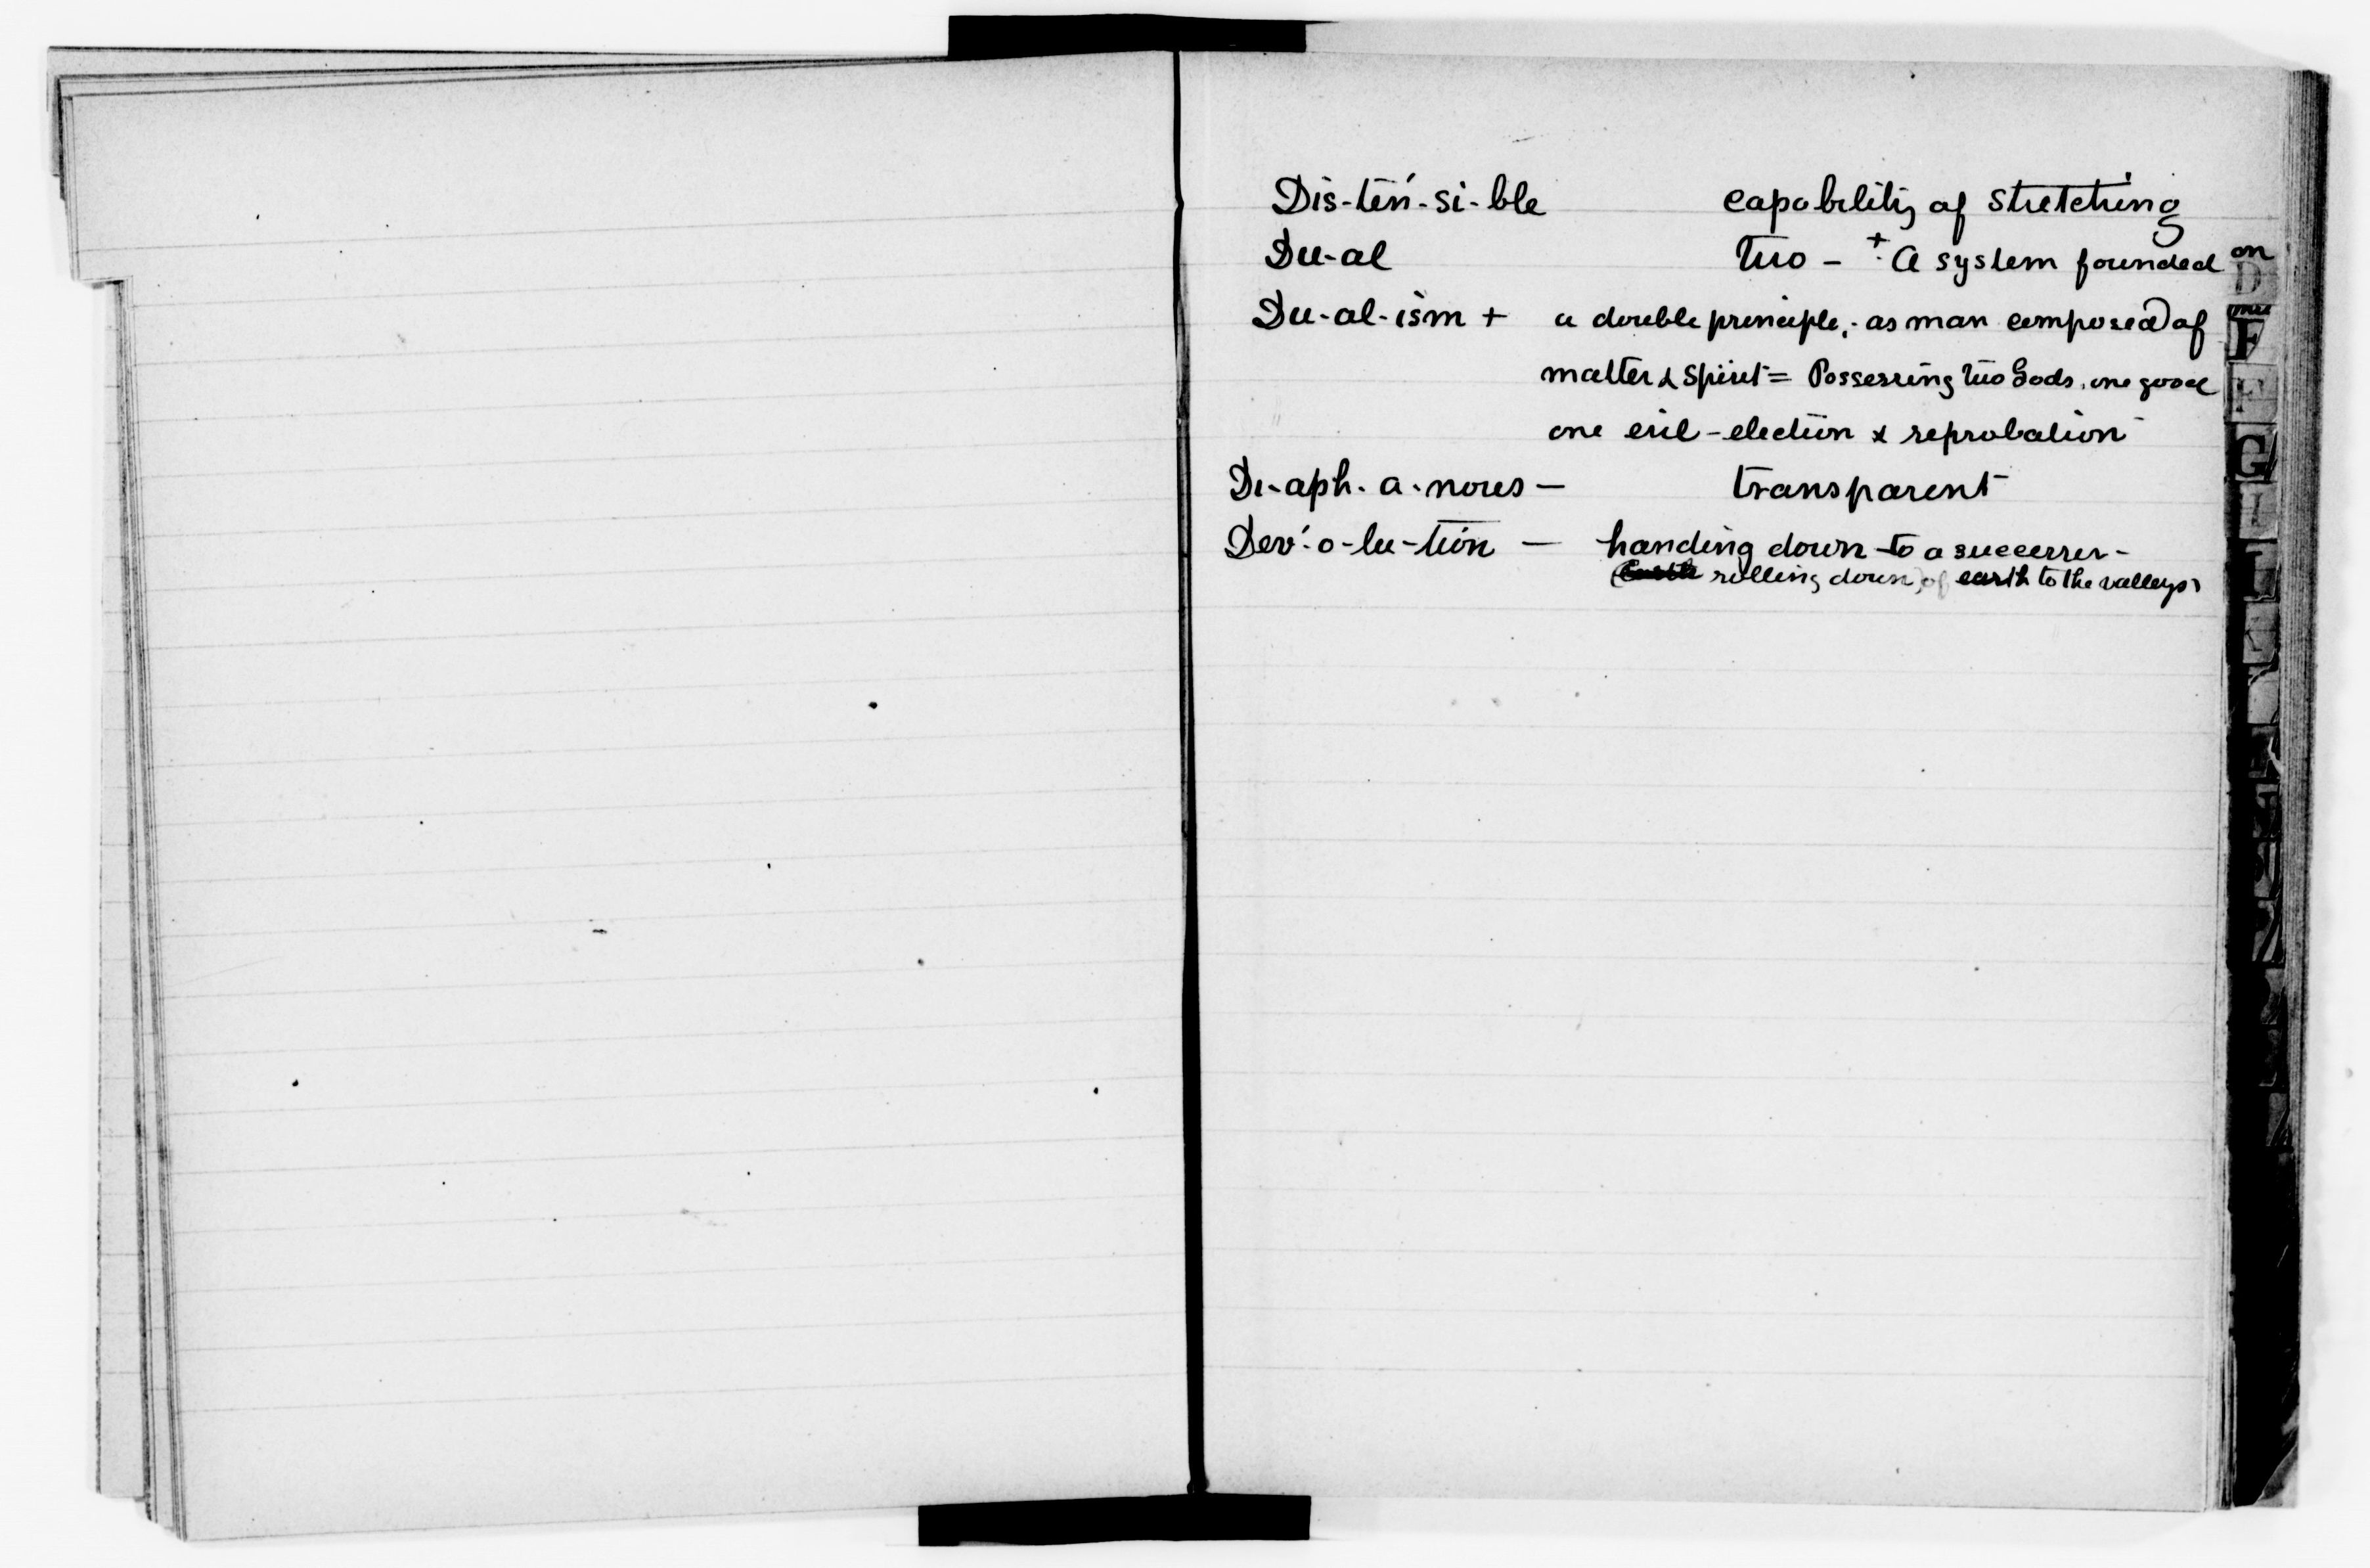 Dis-ten´-si-ble capability of stretching
Du-al Two - + A system founded on
Du-al-ism + a double principle, as man composed of
matter & spirit = Possessing two Gods, one good
one evil - election & reprobation
Di-aph-a-nous — transparent
Dev´-o-lu-tion — handing down to a successer -
(rolling down) of earth to the valleys)
D
F
G